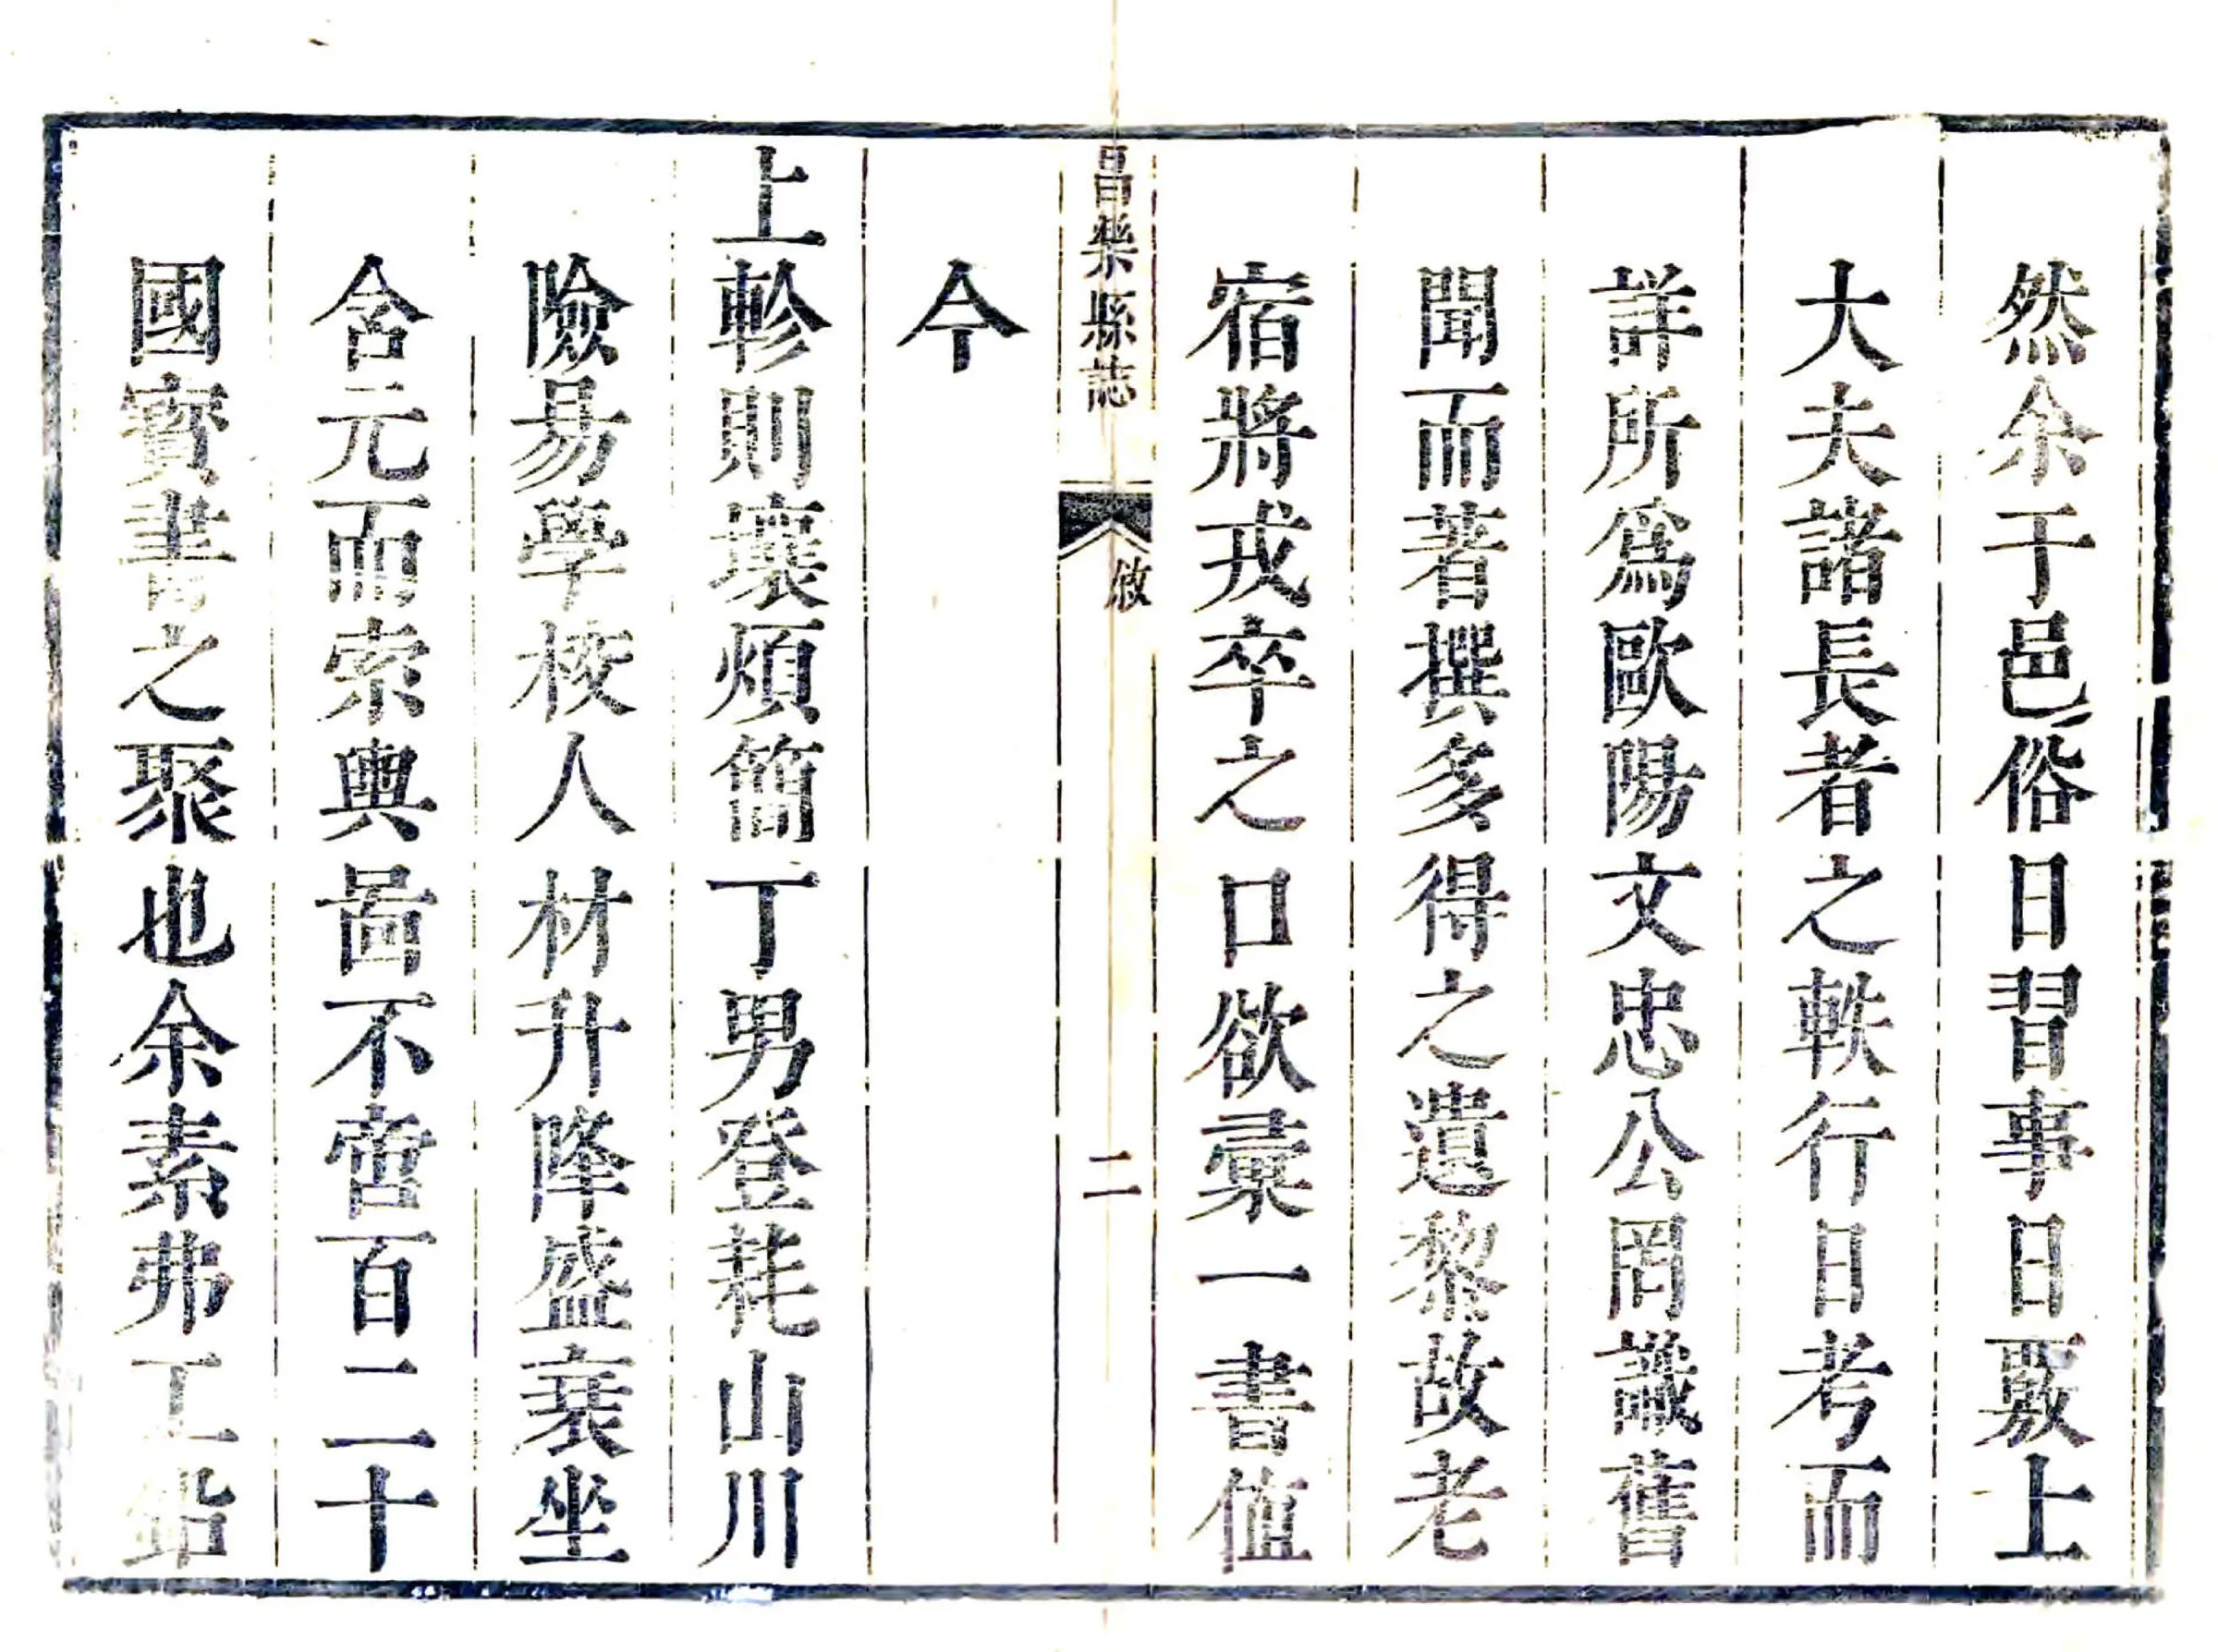 然余于邑俗日習事日覈上
大夫諸長者之軼行日考而
詳所爲歐陽文忠公罔識舊
聞而著撰多得之遺黎故老
宿將戎卒之口欲彙一書值
昌樂縣誌
敘
二
今
上軫則壤煩簡丁男登耗山川
險易學校人材升降盛衰坐
含元而索輿啚不啻百二十
國寶書之聚也余素弗工鉛